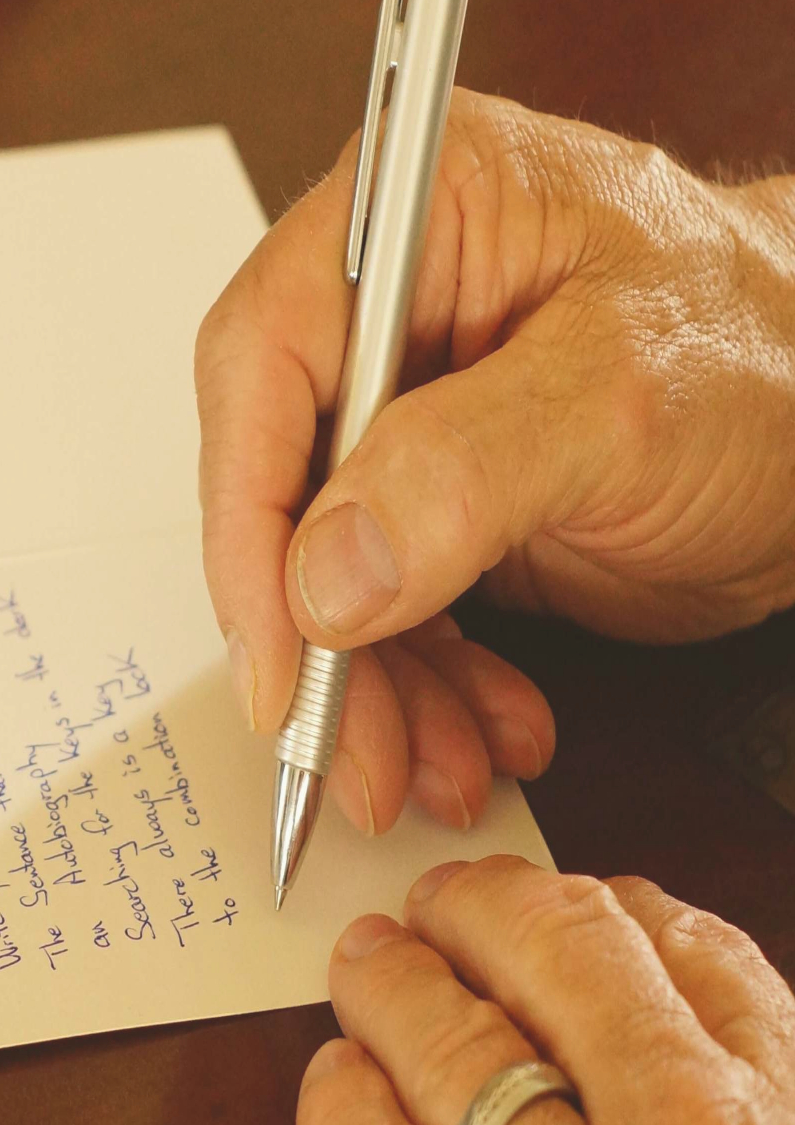 Write
The Sentance
an Autobiography
Searching for the Keys in the dark
There always is a Key
to the combination lock